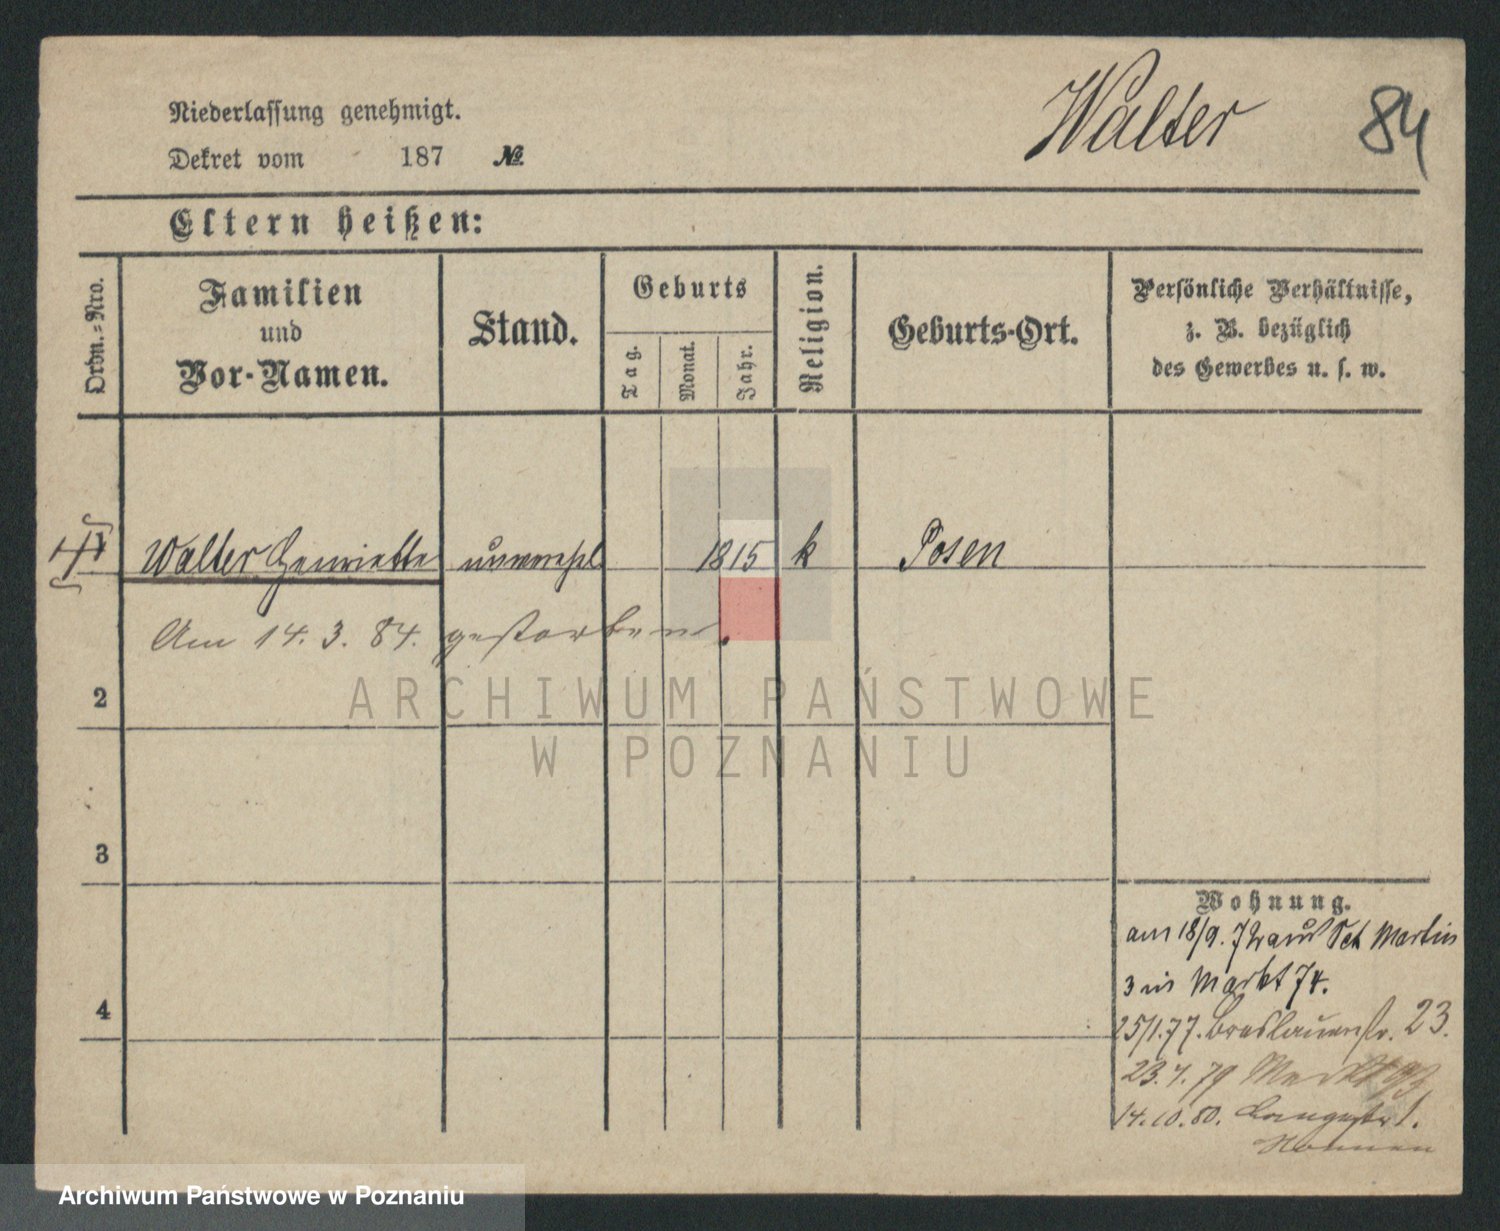 Walter 84
Niederlassung genehmigt.
Dekret vom 187 №
Eltern heißen:
Ordn.=Nro.
Familien
und
Vor-Namen.
Stand.
Geburts
Tag.
Monat.
Jahr.
Religion.
Geburts-Ort.
Persönliche Verhältnisse,
z. B. bezüglich
des Gewerbes u. s. w.
1 Walter Henriette unverehl 1815 k Posen
Am 14. 3. 84. gestorben.
2
ARCHIWUM PAŃSTWOWE
W POZNANIU
3
Wohnung.
am 18/9. 72 aus Sct Martin
3 in Markt 74.
4
25/1. 77. Breslauerstr. 23.
23. 4. 79 Markt
14. 10. 80. Langestr 1.
Archiwum Państwowe w Poznaniu